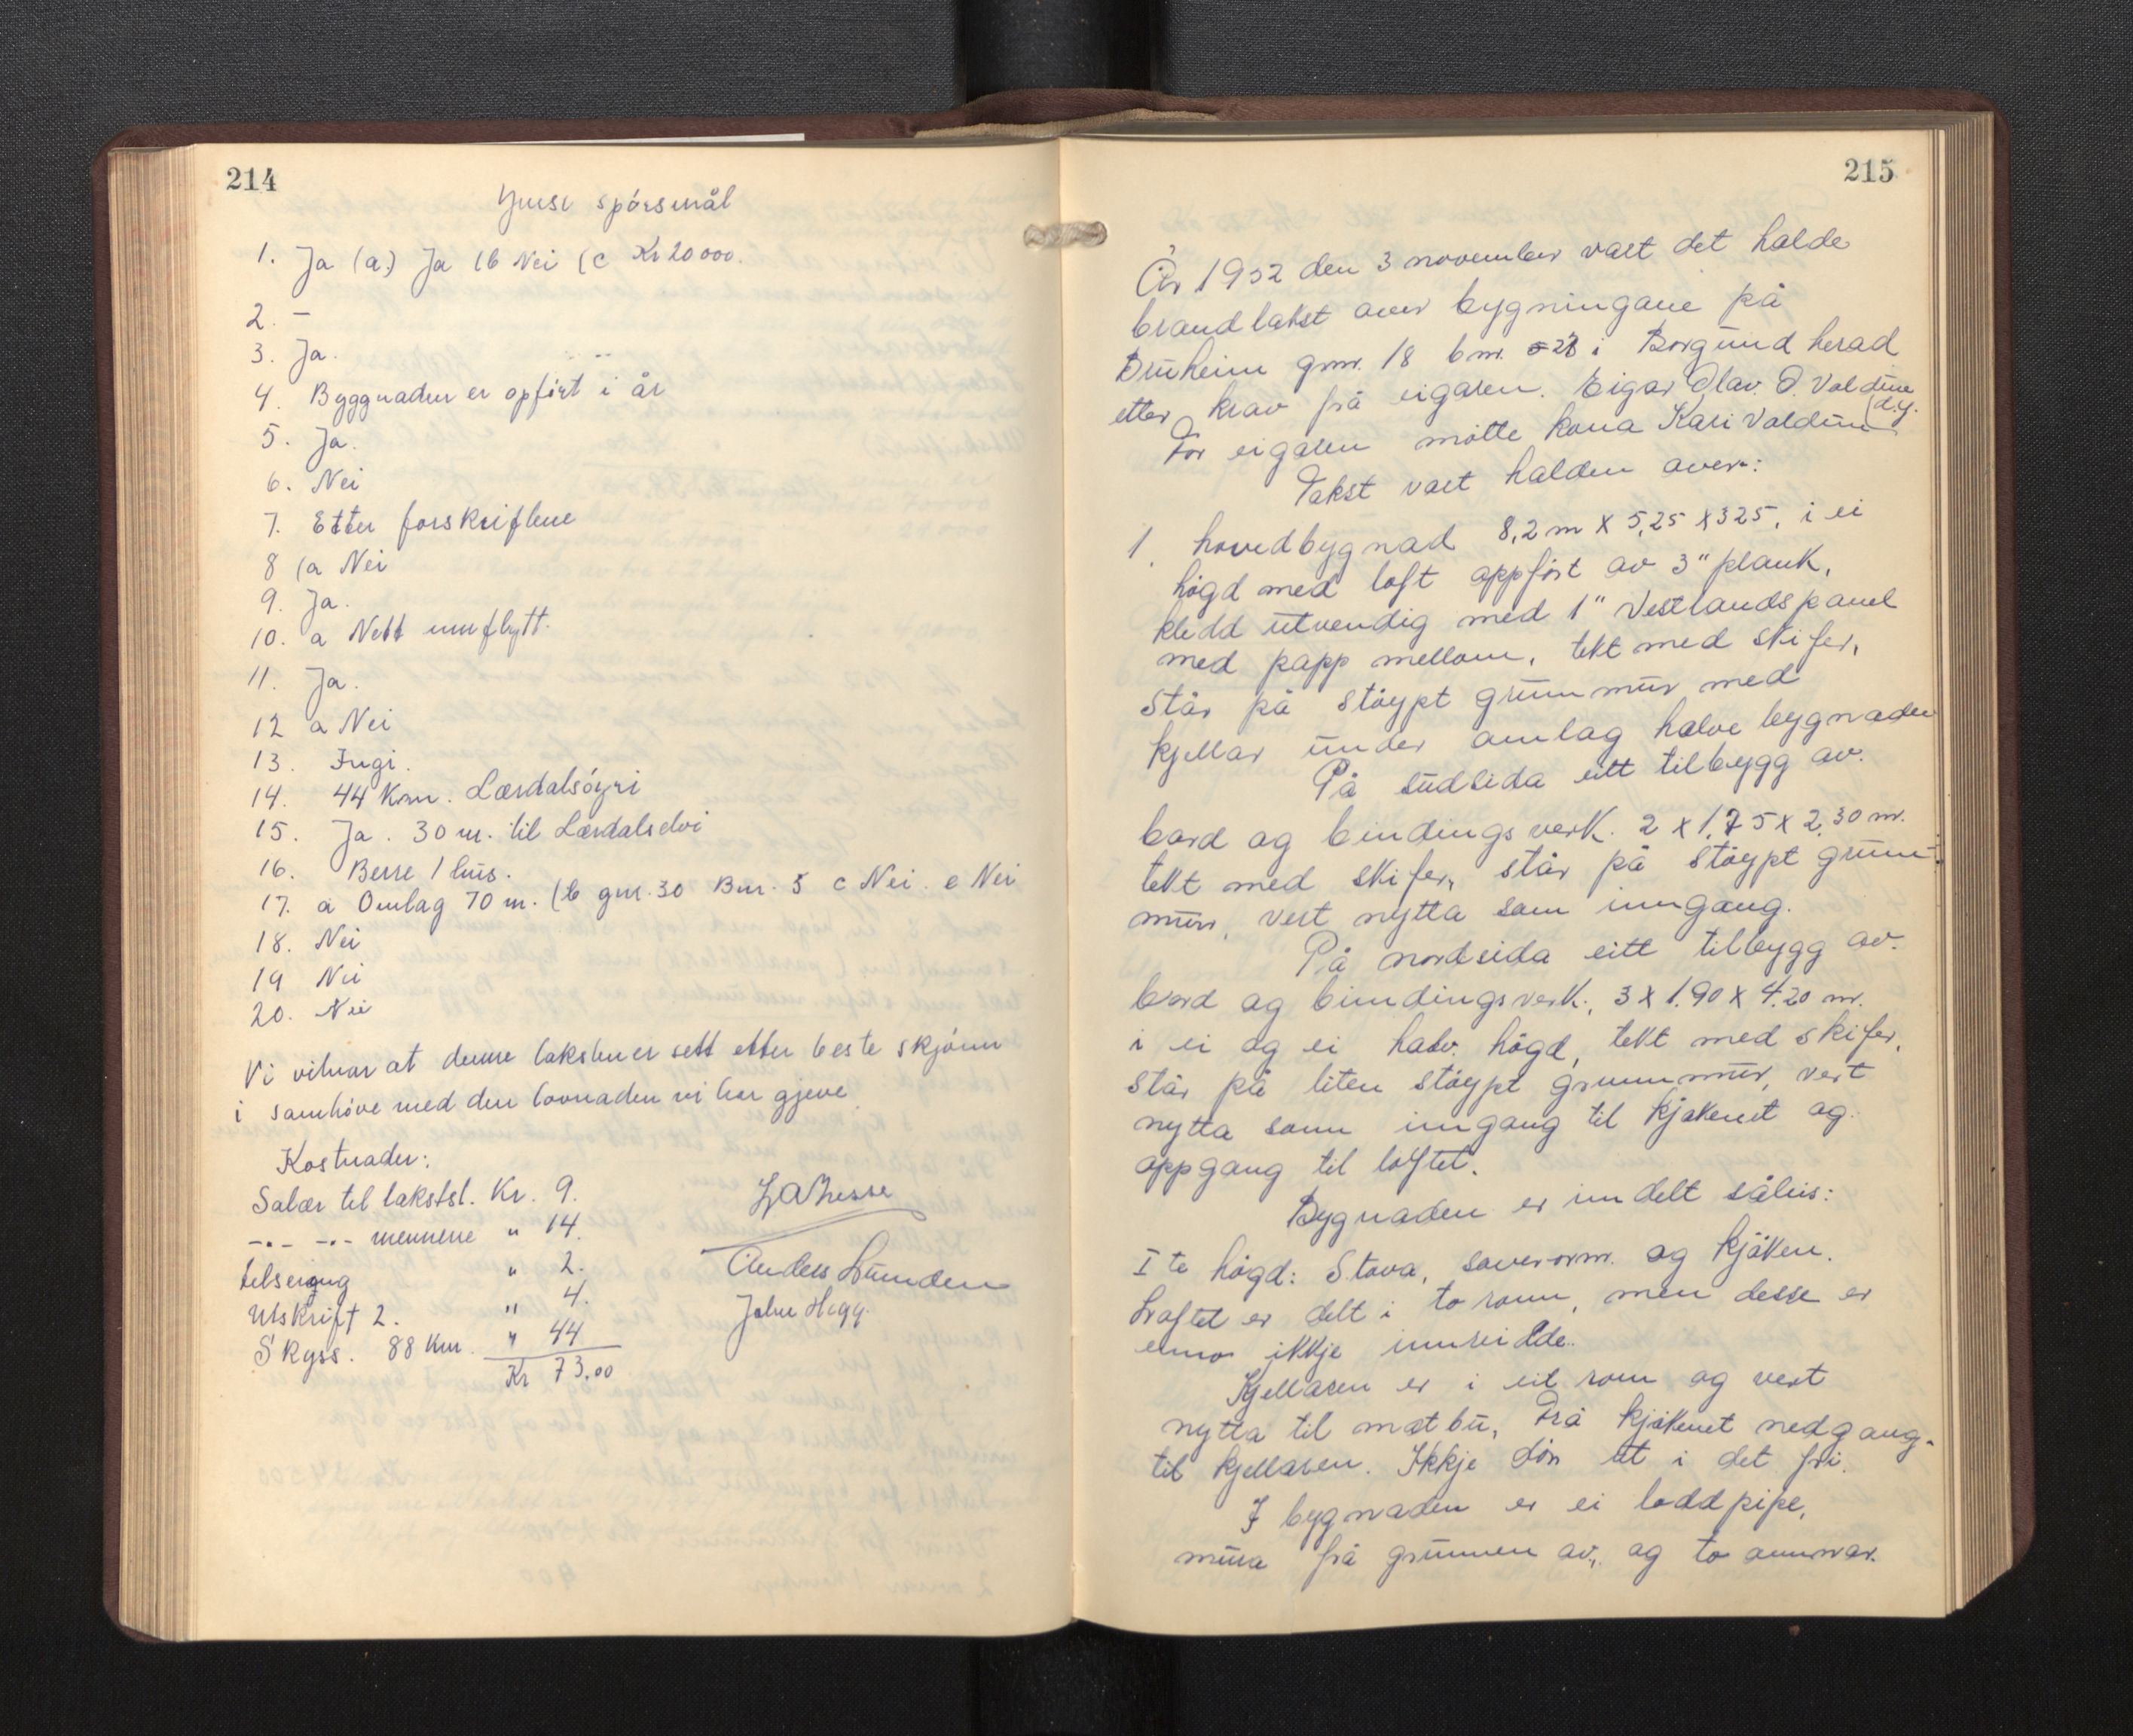 214
Ymse spörsmål
1. Ja (a.) Ja (b Nei (c Kr 20 000.
2. –
3. Ja.
4. Byggnaden er opfört i år
5. Ja.
6. Nei
7. Etter forskriftene
8 (a Nei
9. Ja.
10. a Nett innflytt.
11. Ja.
12 a Nei
13. Ingi.
14. 44 Km. Lærdalsöyri
15. Ja. 30 m. til Lærdalselvi
16. Berre 1 hus.
17. a Omlag 70 m. (b gnr. 30 Bnr. 5 c Nei. e Nei
18. Nei
19 Nei
20. Nei
Vi vitnar at denne taksten er sett etter beste skjönn
i samhöve med den lovnaden vi har gjeve
Kostnader:
Salær til takstst. Kr. 9.
–"– –"– mennene " 14.
tilseging " 2.
Utskrift 2. " 4.
Skyss. 88 Km. " 44
Kr 73.00
Anders Lunden
John Hegg.
215
År 1952 den 3 november vart det halde
brandtakst over bygningane på
Bruheim gnr. 18 bnr. 28 i Borgund herad
etter krav frå eigaren. Eigar Olav. O. Voldum
(d.y.
For eigaren møtte kona Kari Voldum
Takst vart halden over:
1. hovedbygnad 8,2 m x 5,25 x 325, i ei
högd med loft oppfört av 3" plank,
kledd utvendig med 1" Vestlandspanel
med papp mellom, tekt med skifer,
står på stöypt grunnmur med
kjellar under omlag halve bygnaden
På sudsida eitt tilbygg av.
bord og bindingsverk. 2 x 1,75 x 2,30 m.
tekt med skifer, står på stöypt grunn-
mur, vert nytta som inngang.
På nordsida eitt tilbygg av.
bord og bindingsverk, 3 x 1.90 x 4.20 m.
i ei og ei halv. högd, tekt med skifer,
står på liten stöypt grunnmur, vert
nytta som inngang til kjøkenet og
oppgang til loftet.
Bygnaden er inndelt såleis:
I te högd: Stova, soverorm. og kjöken.
Loftet er delt i to romm, men desse er
enno ikkje innreidde.
Kjellaren er i eit rom og vert
nytta til matbu, Frå kjökenet nedgang.
til kjellaren. Ikkje dör ut i det fri.
I bygnaden er ei loddpipe,
mura frå grunnen av, og to omnar.